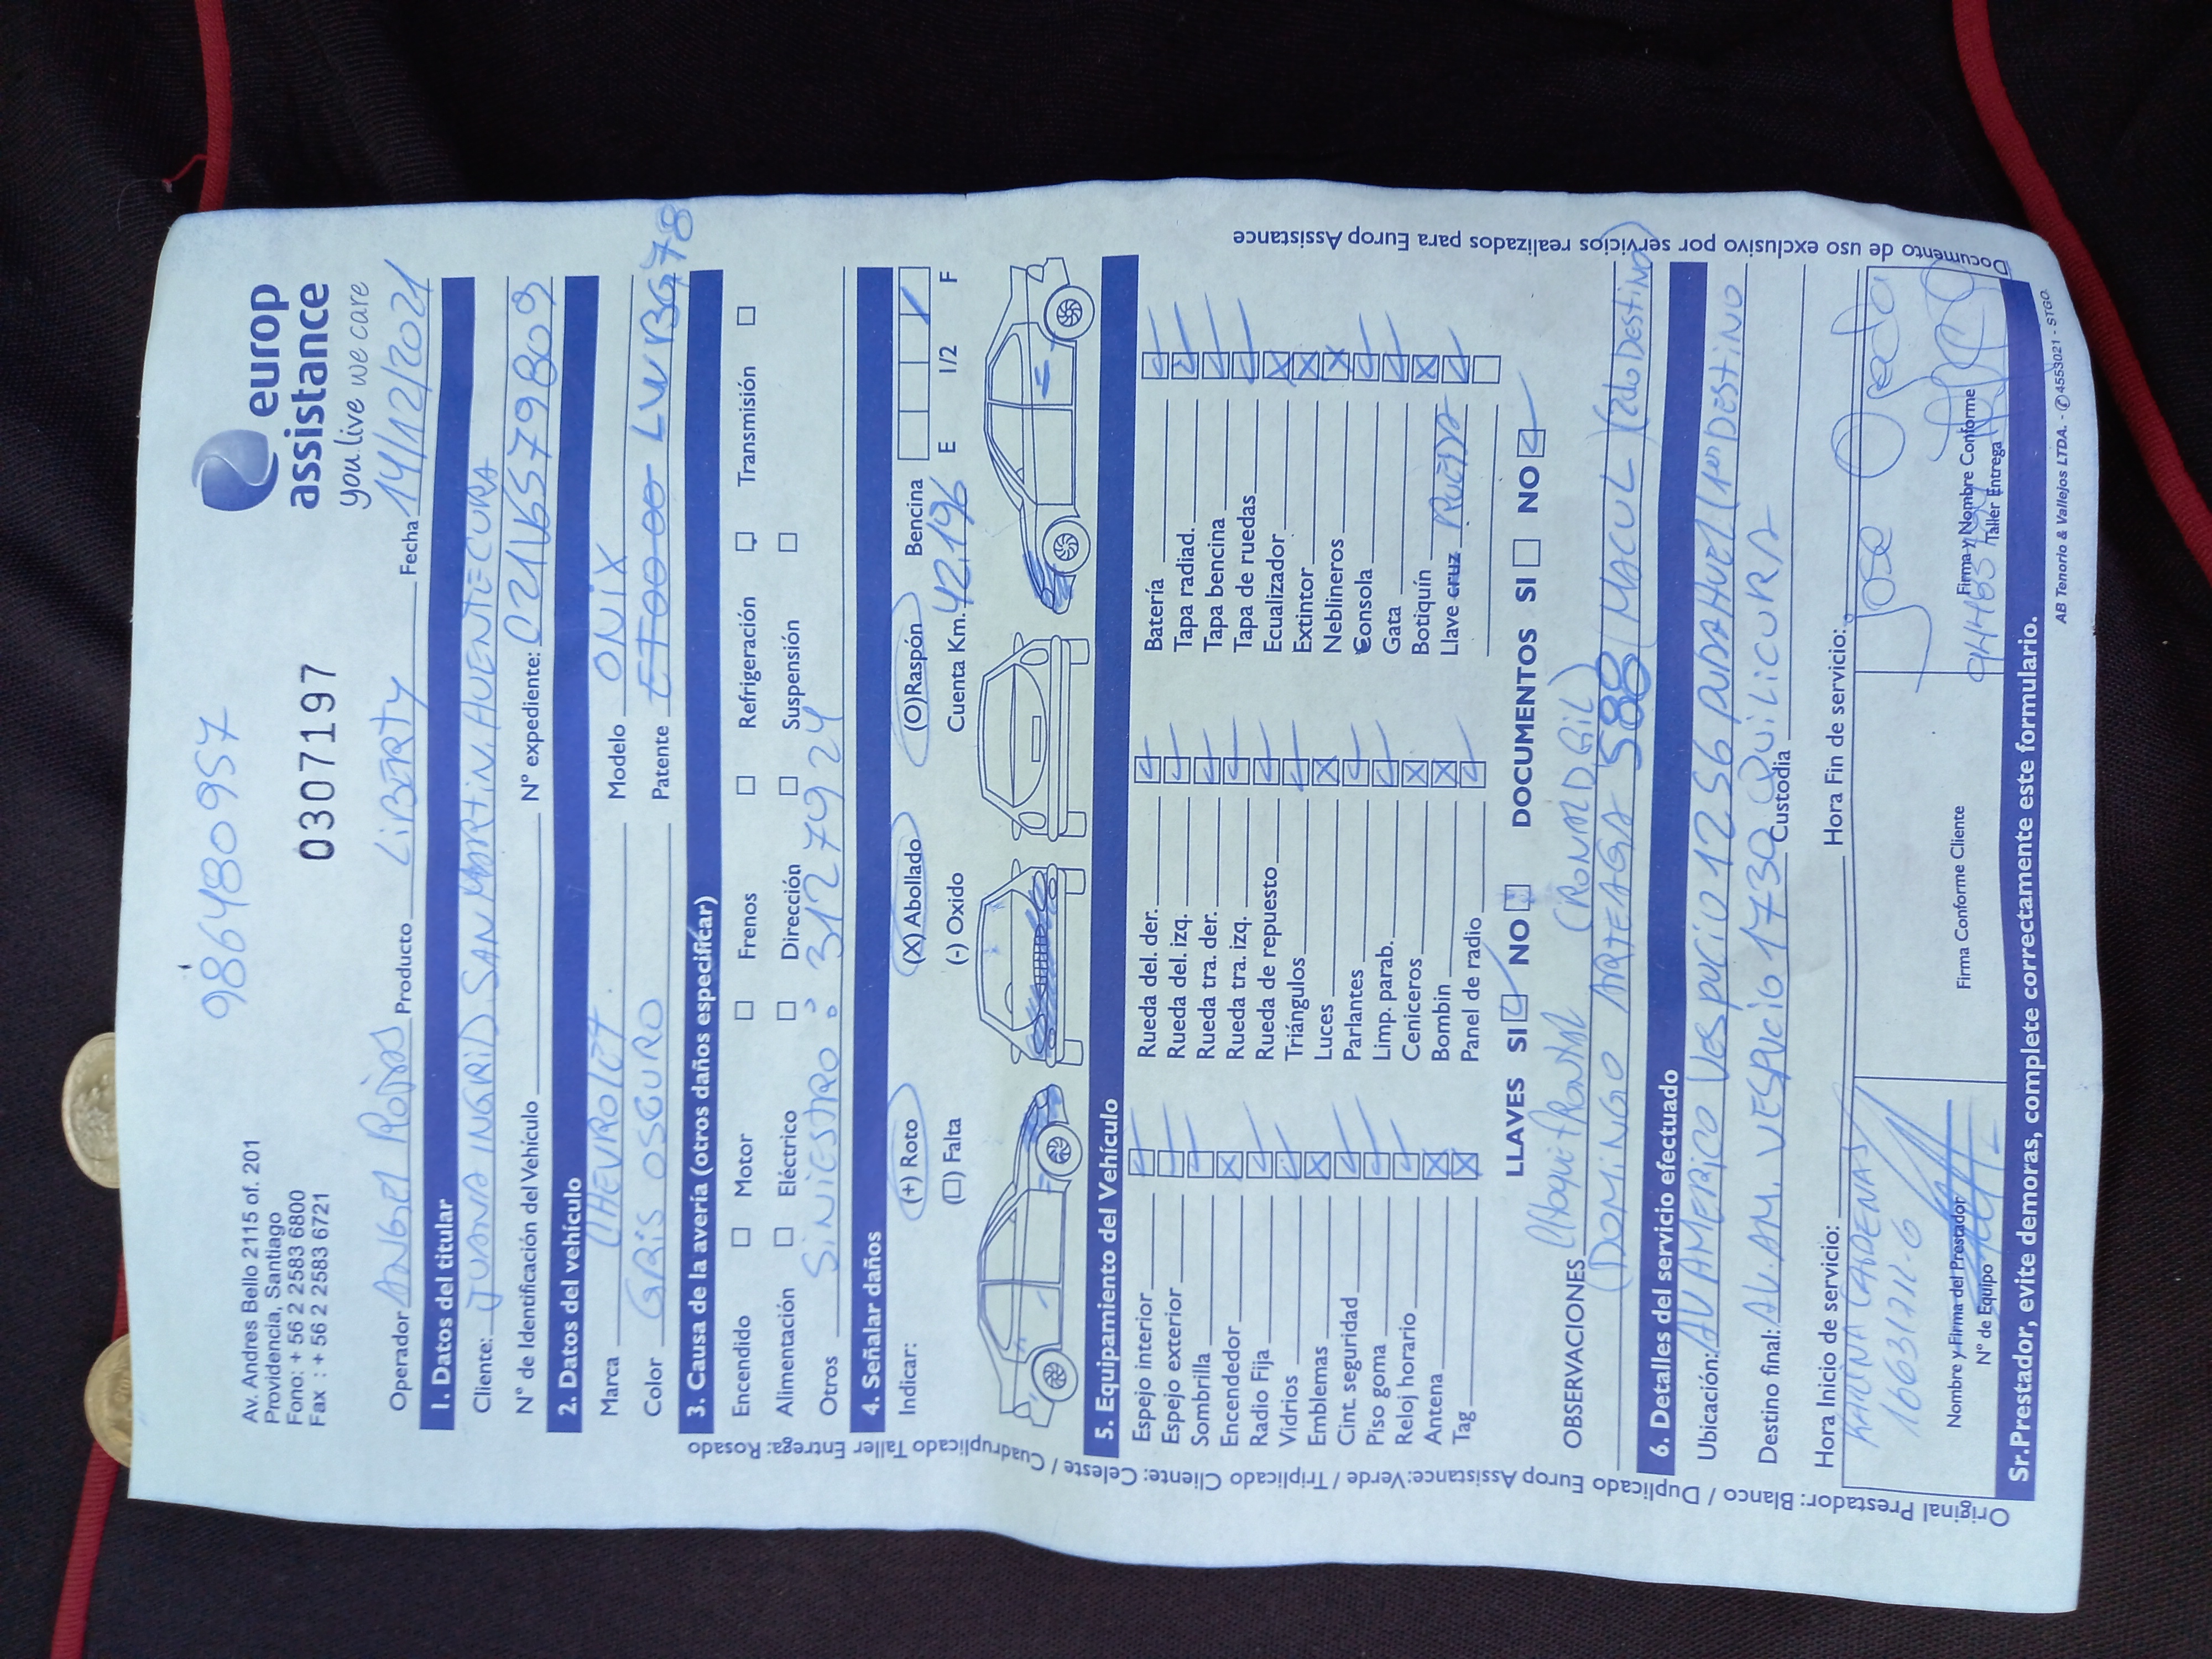 986480957
Av. Andres Bello 2115 of. 201
Providencia, Santiago
Fono: + 56 2 2583 6800
Fax : + 56 2 2583 6721
0307197
europ
assistance
you live we care
Operador ANGEL ROJAS Producto LIBERTY Fecha 14/12/2021
1. Datos del titular
Cliente: JUANA INGRID SAN MARTIN HUENTECURA
N° de Identificación del Vehículo N° expediente: C21V6579809
2. Datos del vehículo
Marca CHEVROLET Modelo ONIX
Color GRIS OSCURO Patente LWBG78
3. Causa de la avería (otros daños especificar)
Encendido Motor Frenos Refrigeración Transmisión
Alimentación Eléctrico Dirección Suspensión
Otros SINIESTRO: 3127924
4. Señalar daños
Indicar: (+) Roto (X) Abollado (O)Raspón Bencina
(□) Falta (-) Oxido Cuenta Km. 42.196 E 1/2 F
5. Equipamiento del Vehículo
Espejo interior Rueda del. der. Batería
Espejo exterior Rueda del. izq. Tapa radiad.
Sombrilla Rueda tra. der. Tapa bencina
Encendedor Rueda tra. izq. Tapa de ruedas
Radio Fija Rueda de repuesto Ecualizador
Vidrios Triángulos Extintor
Emblemas Luces Neblineros
Cint. seguridad Parlantes Consola
Piso goma Limp. parab. Gata
Reloj horario Ceniceros Botiquín
Antena Bombin Llave cruz RUEDA
Tag Panel de radio
LLAVES SI NO DOCUMENTOS SI NO
OBSERVACIONES CHOQUE FRONTAL (RONALD GIL)
(DOMINGO ARTEAGA 588 (MACUL) (2do DESTINO)
6. Detalles del servicio efectuado
Ubicación: AV AMERICO VESPUCIO 1256 PUDAHUEL (1er DESTINO
Destino final: AV. AM. VESPUCIO 1730 QUILICURA
Custodia
Hora Inicio de servicio: Hora Fin de servicio:
KARINA CARDENAS
Jose
Nombre y Firma del Prestador
N° de Equipo
Firma Conforme Cliente
Firma y Nombre Conforme
Taller Entrega
Sr.Prestador, evite demoras, complete correctamente este formulario.
AB Tenorio & Vallejos LTDA. - ✆ 4553021 - STGO.
Original Prestador: Blanco / Duplicado Europ Assistance:Verde / Triplicado Cliente: Celeste / Cuadruplicado Taller Entrega: Rosado
Documento de uso exclusivo por servicios realizados para Europ Assistance